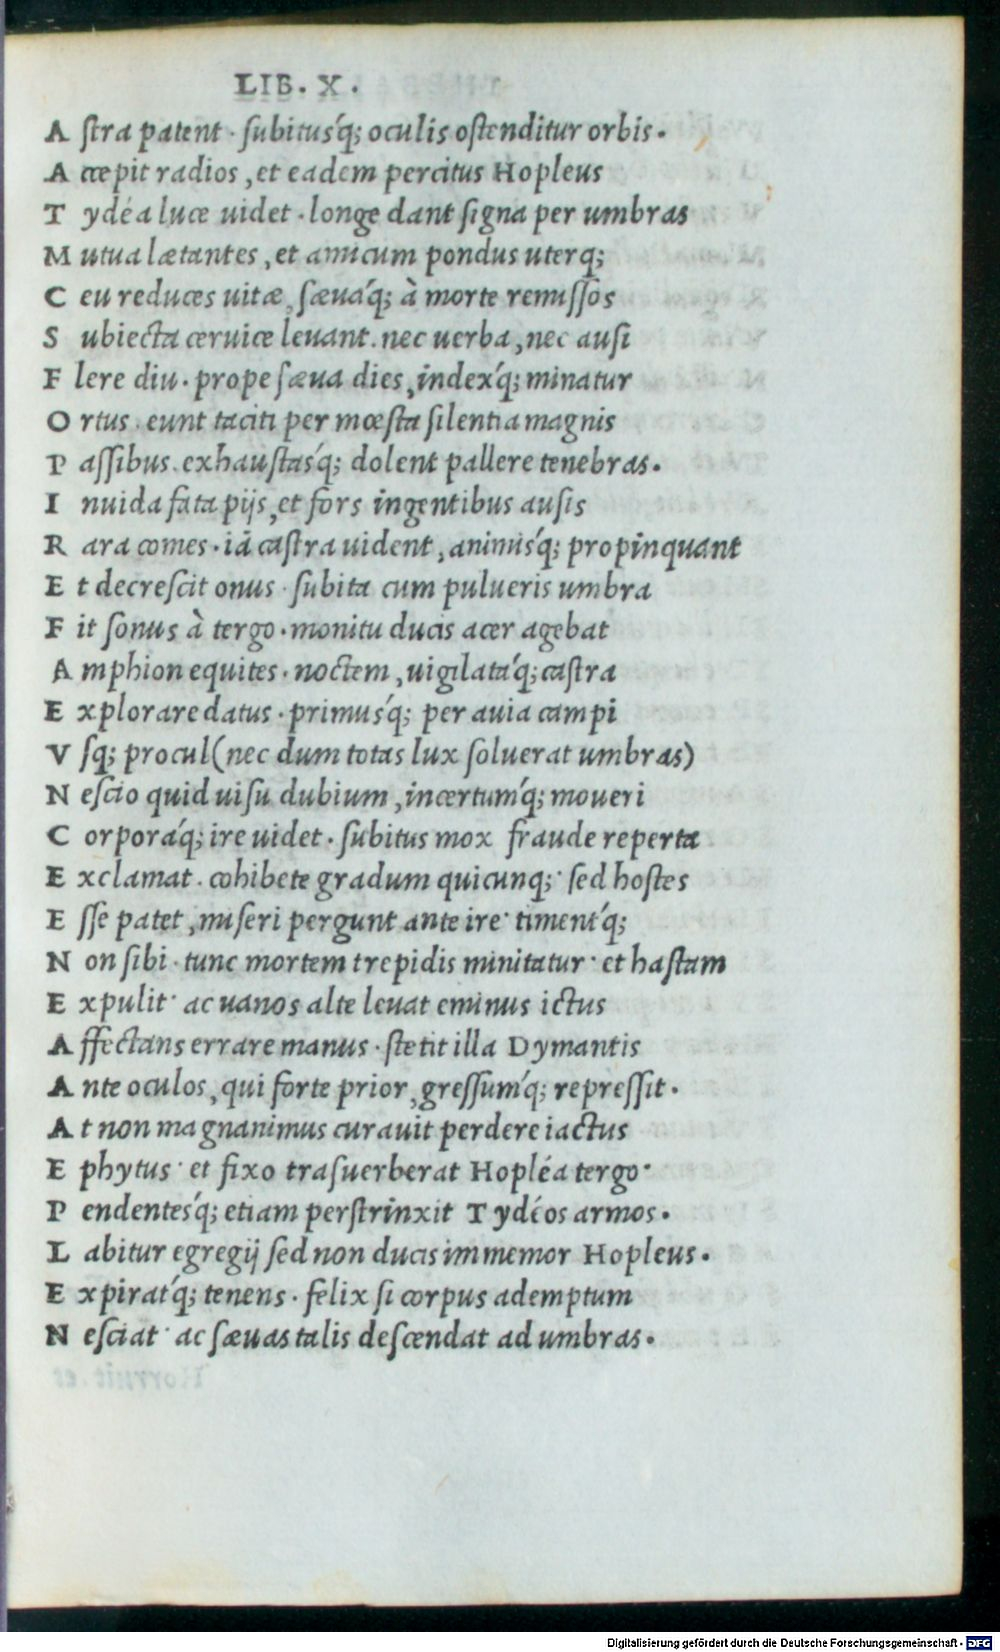 LIB. X.
A stra patent · subitusq́; oculis ostenditur orbis.
A ccepit radios, et eadem percitus Hopleus
T ydéa luce uidet · longe dant signa per umbras
M utua lætantes, et amicum pondus uterq;
C eu reduces uitæ, sæuáq; à morte remissos
S ubiecta ceruice leuant. nec uerba, nec ausi
F lere diu · prope sæua dies, indexq́; minatur
O rtus. eunt taciti per mœsta silentia magnis
P assibus. exhaustasq́; dolent pallere tenebras.
I nuida fata pijs, et fors ingentibus ausis
R ara comes · iā castra uident, animisq́; propinquant
E t decrescit onus · subita cum pulueris umbra
F it sonus à tergo · monitu ducis acer agebat
A mphion equites · noctem, uigilatáq; castra
E xplorare datus · primusq́; per auia campi
V sq; procul (nec dum totas lux soluerat umbras)
N escio quid uisu dubium, incertumq́; moueri
C orporáq; ire uidet · subitus mox fraude reperta
E xclamat. cohibete gradum quicunq; · sed hostes
E sse patet, miseri pergunt ante ire · timentq́;
N on sibi · tunc mortem trepidis minitatur · et hastam
E xpulit · ac uanos alte leuat eminus ictus
A ffectans errare manus · stetit illa Dymantis
A nte oculos, qui forte prior, gressumq́; repressit.
A t non magnanimus curauit perdere iactus
E phytus · et fixo trasuerberat Hopléa tergo ·
P endentesq́; etiam perstrinxit Tydéos armos.
L abitur egregij sed non ducis immemor Hopleus.
E xpiratq́; tenens · felix si corpus ademptum
N esciat · ac sæuas talis descendat ad umbras.
Digitalisierung gefördert durch die Deutsche Forschungsgemeinschaft · DFG